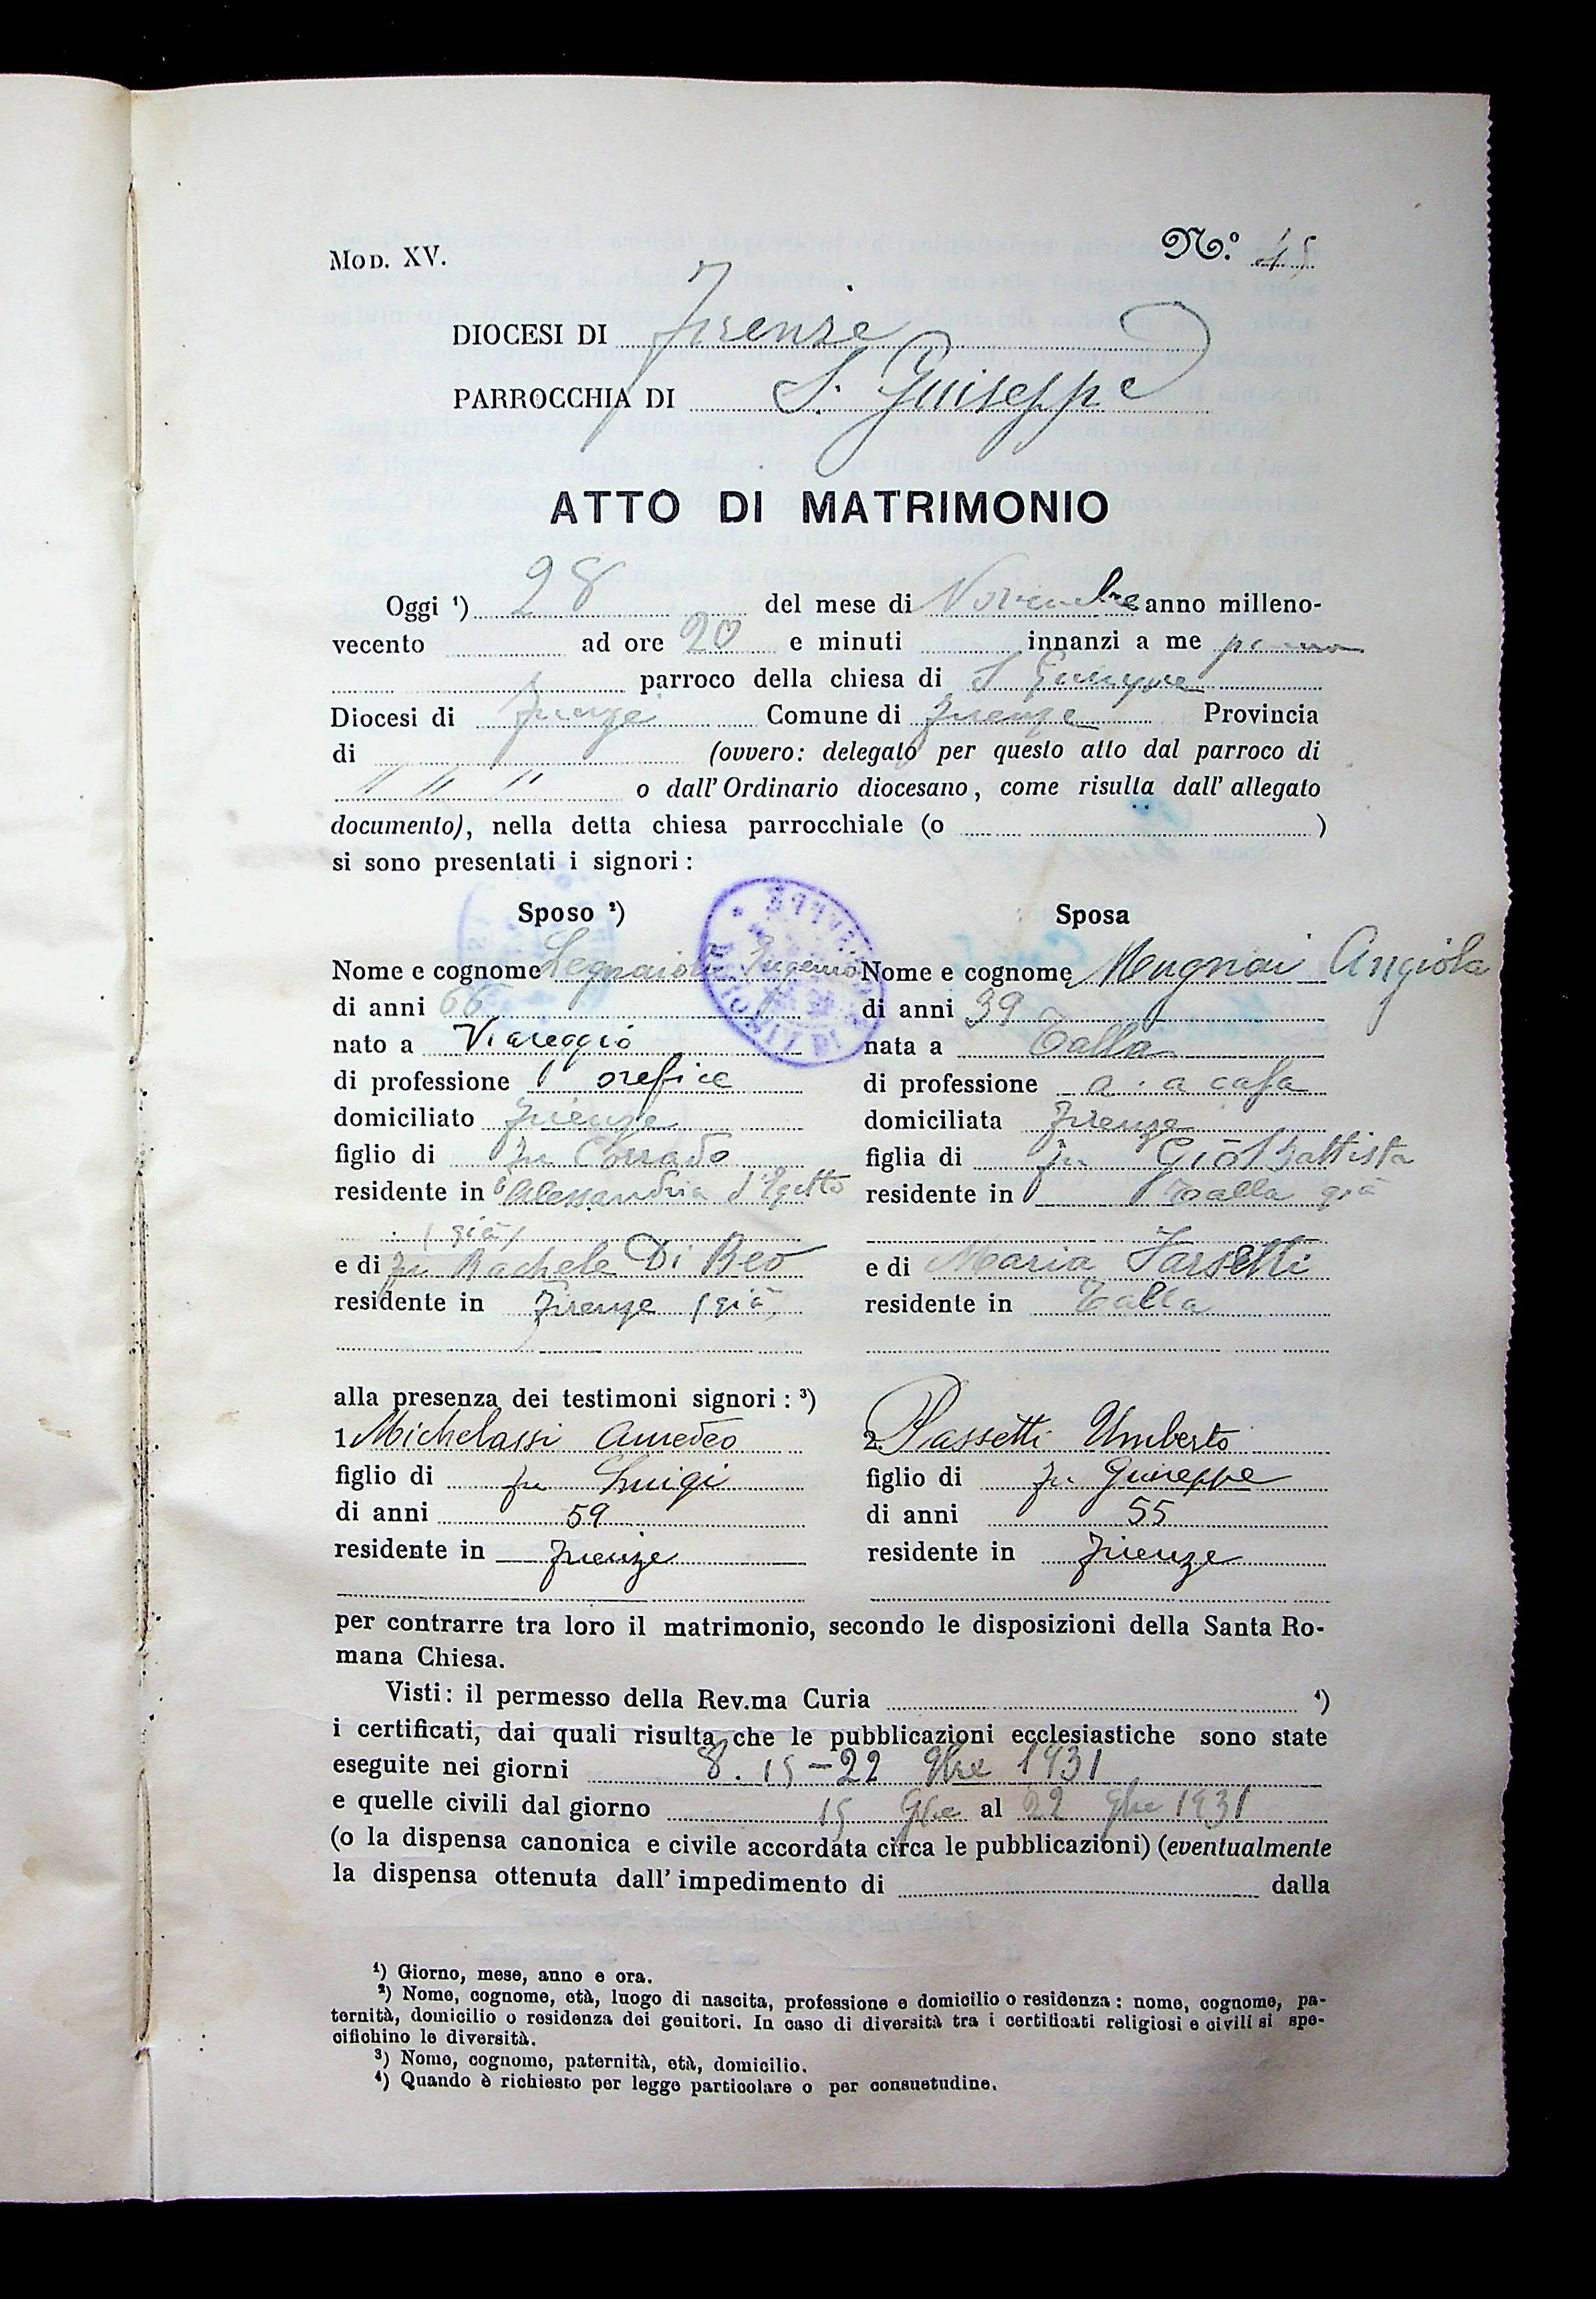 Mod. XV.
N.° 45
DIOCESI DI Firenze
PARROCCHIA DI S. Giuseppe
ATTO DI MATRIMONIO
Oggi ¹) 28 del mese di Novembre anno milleno-
vecento ad ore 20 e minuti innanzi a me
parroco della chiesa di S Giuseppe
Diocesi di Firenze Comune di Firenze Provincia
di (ovvero: delegato per questo atto dal parroco di
" " " o dall' Ordinario diocesano, come risulta dall' allegato
documento), nella detta chiesa parrocchiale (o )
si sono presentati i signori:
Sposo ²)
Nome e cognome Legnaioli Eugenio
di anni 66
nato a Viareggio
di professione orefice
domiciliato Firenze
figlio di fu Corrado
residente in Alessandria d'Egitto
(già)
e di fu Rachele Di Beo
residente in Firenze (già)
Sposa
Nome e cognome Mugnai Angiola
di anni 39
nata a Talla
di professione a. a casa
domiciliata Firenze
figlia di fu Gio Battista
residente in Talla già
e di Maria Farsetti
residente in Talla
alla presenza dei testimoni signori: ³)
1. Michelassi Amedeo
figlio di fu Luigi
di anni 59
residente in Firenze
2. Rassetti Umberto
figlio di fu Giuseppe
di anni 55
residente in Firenze
per contrarre tra loro il matrimonio, secondo le disposizioni della Santa Ro-
mana Chiesa.
Visti: il permesso della Rev.ma Curia ⁴)
i certificati, dai quali risulta che le pubblicazioni ecclesiastiche sono state
eseguite nei giorni 8. 15 - 22 9bre 1931
e quelle civili dal giorno 15 9bre al 22 9bre 1931
(o la dispensa canonica e civile accordata circa le pubblicazioni) (eventualmente
la dispensa ottenuta dall' impedimento di dalla
¹) Giorno, mese, anno e ora.
²) Nome, cognome, età, luogo di nascita, professione e domicilio o residenza: nome, cognome, pa-
ternità, domicilio o residenza dei genitori. In caso di diversità tra i certificati religiosi e civili si spe-
cifichino le diversità.
³) Nome, cognome, paternità, età, domicilio.
⁴) Quando è richiesto per legge particolare o per consuetudine.